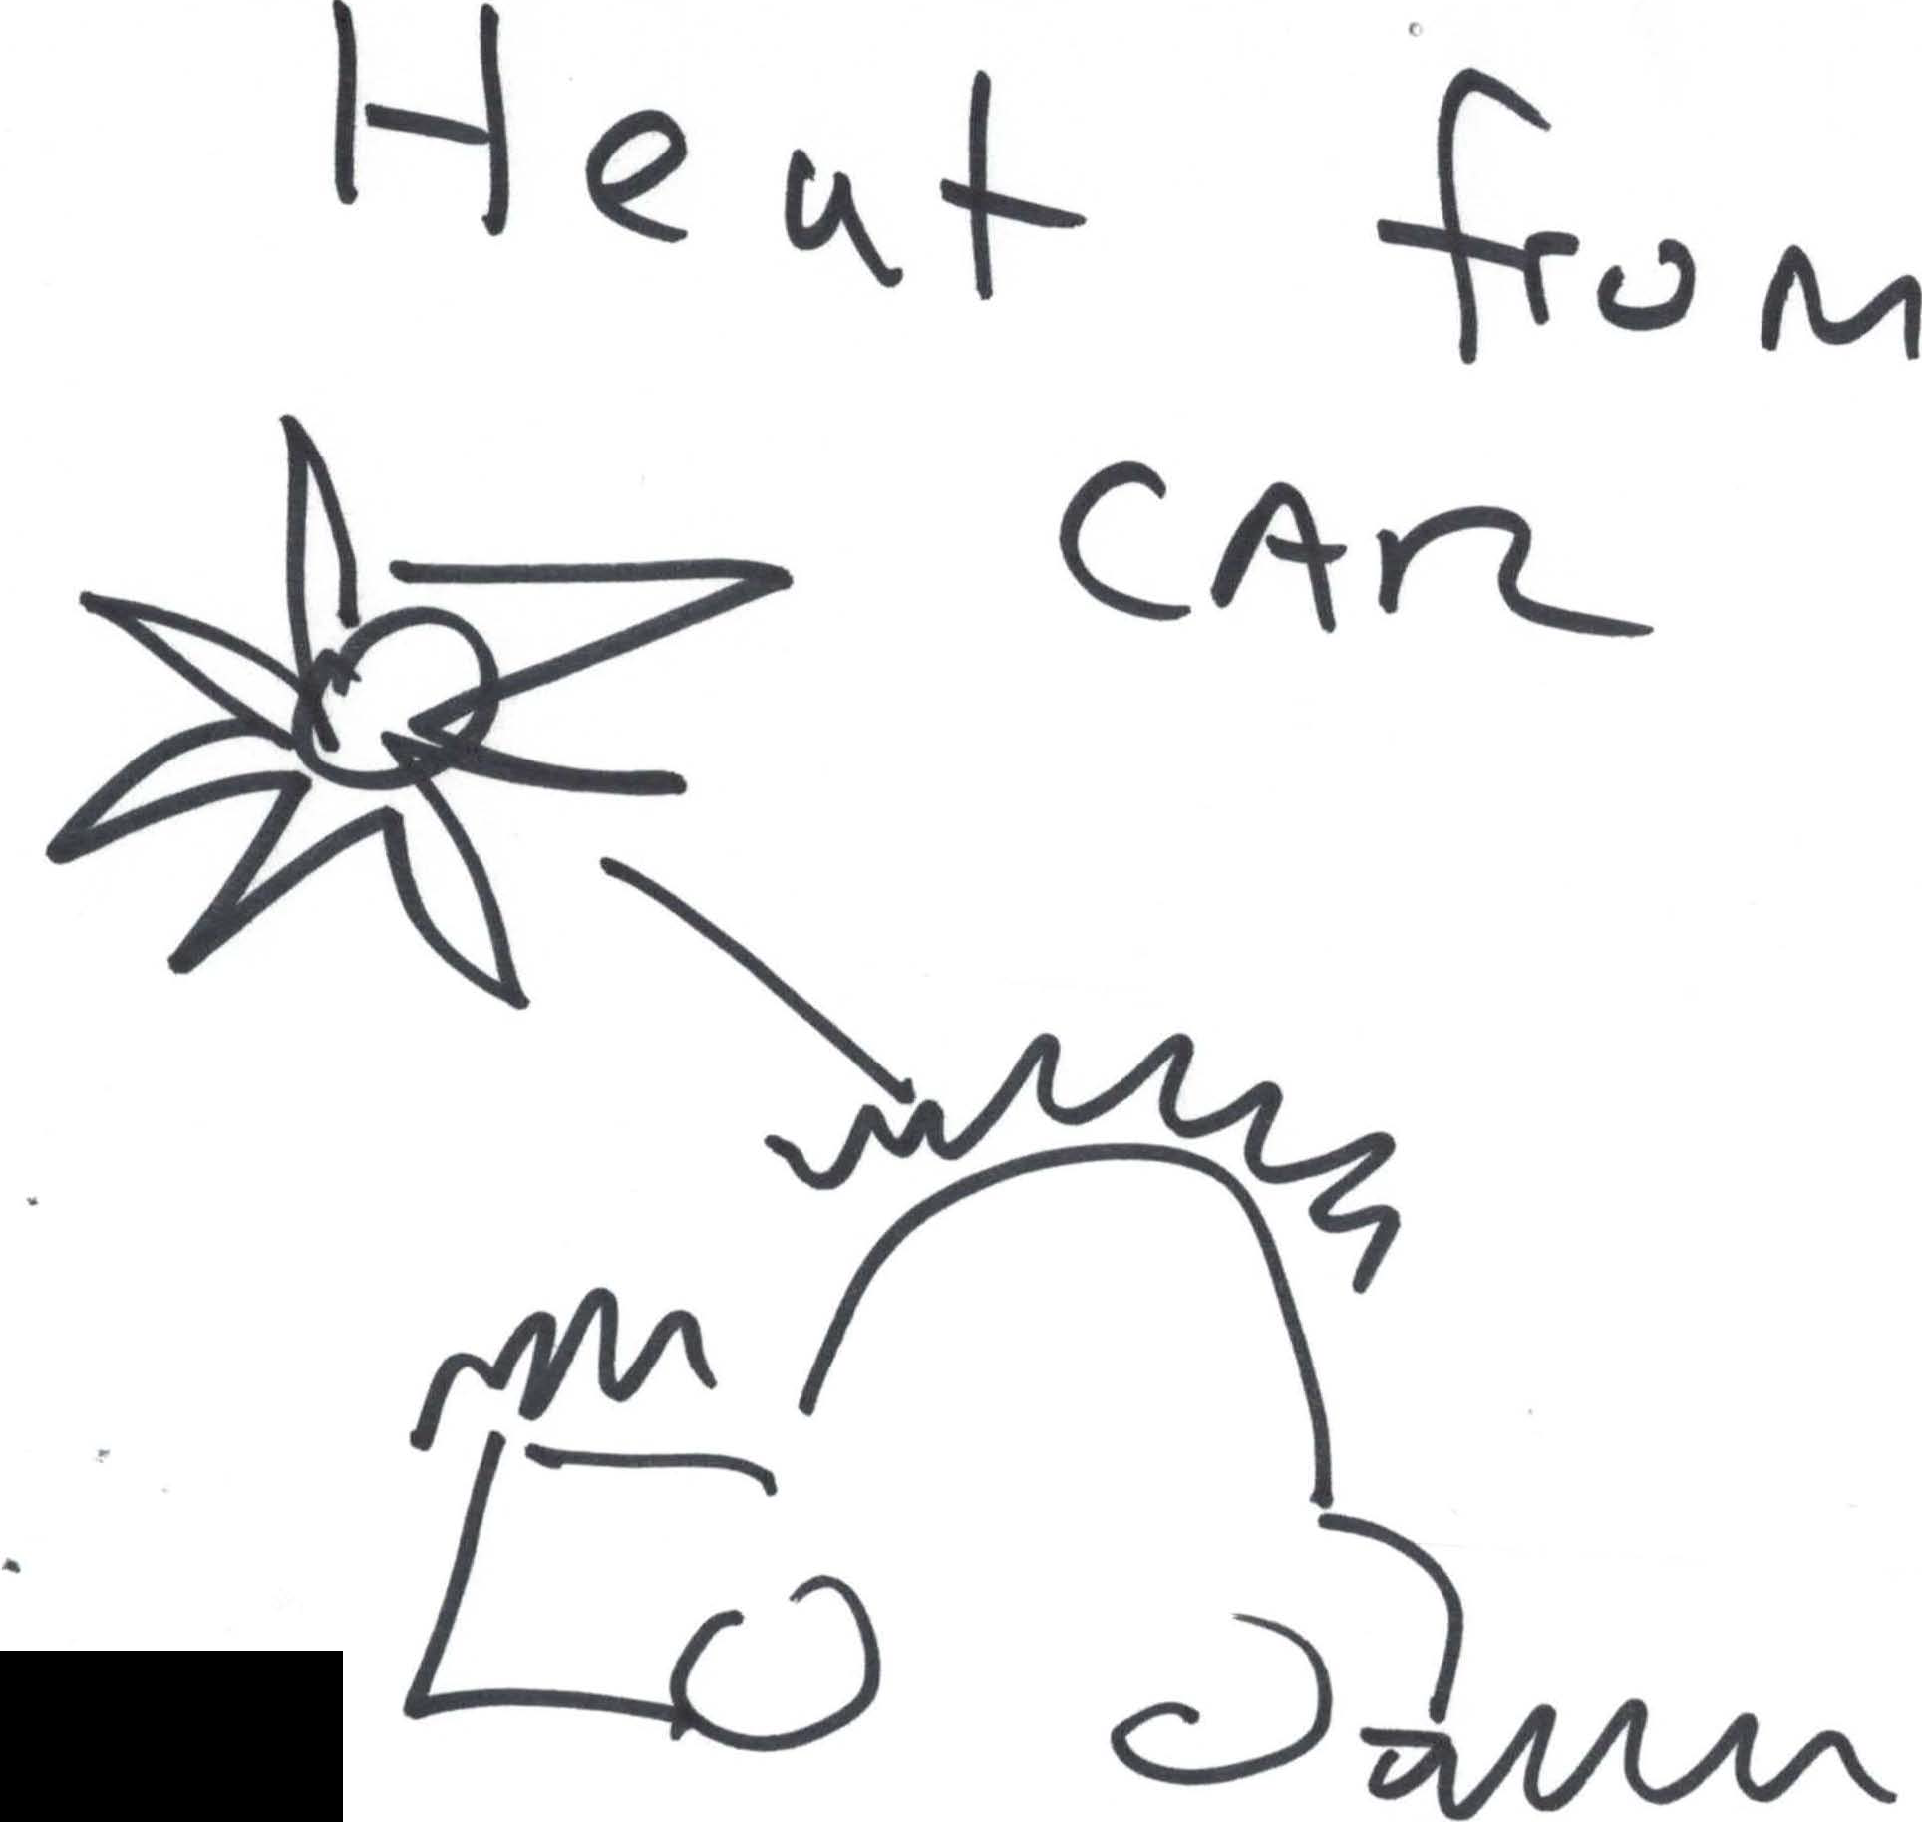 Heat from
CAR